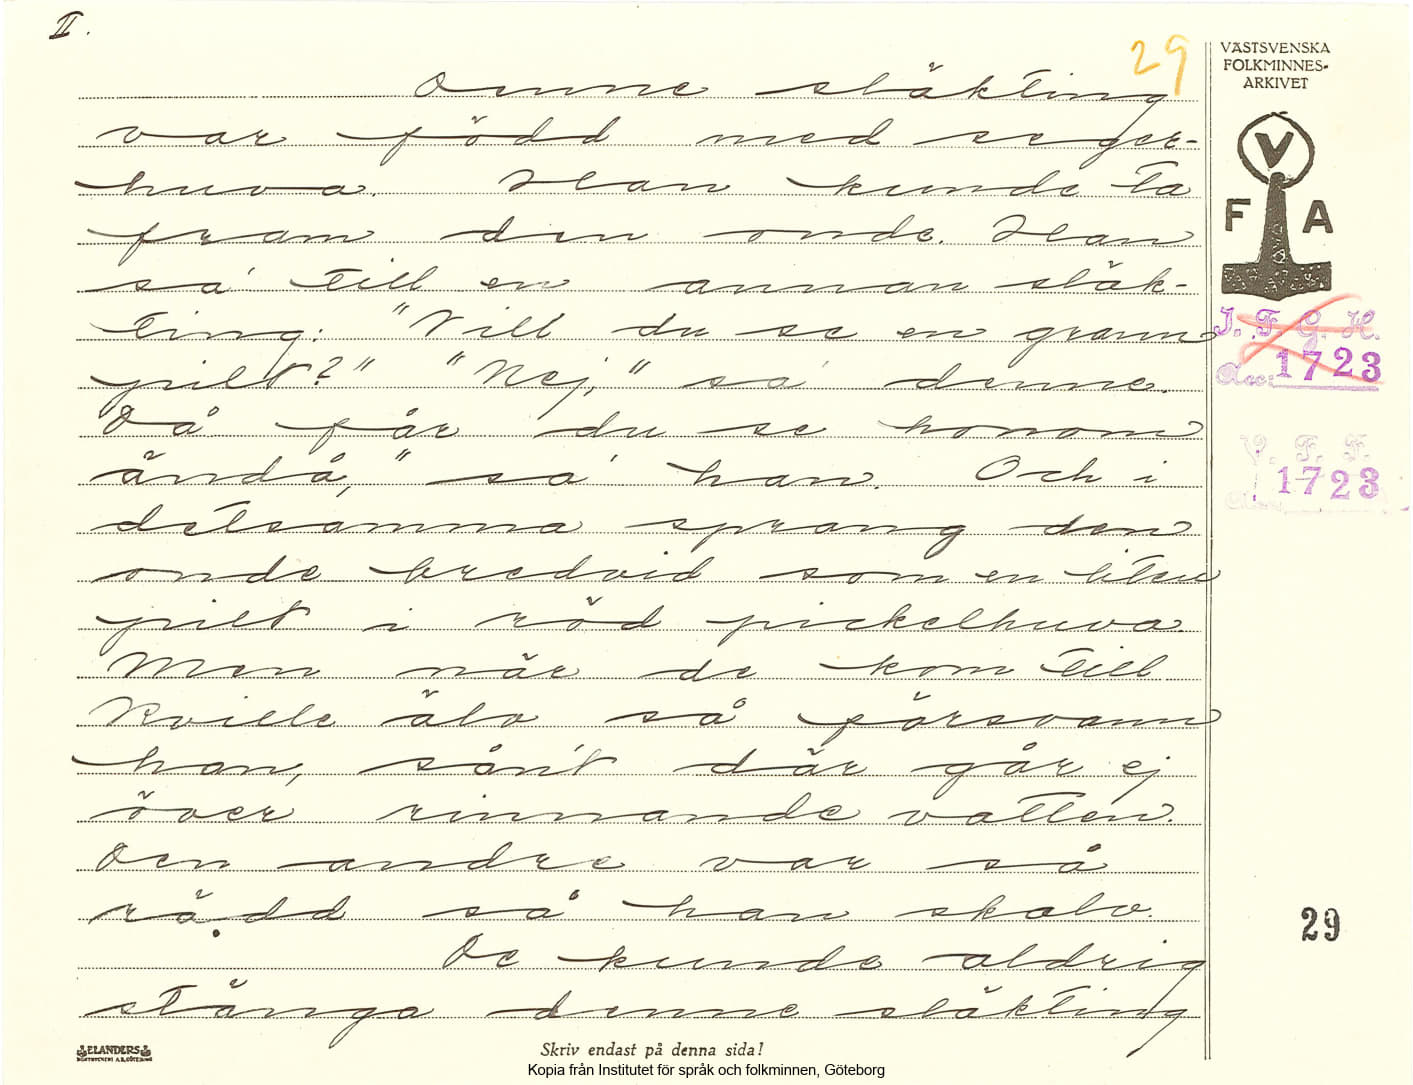 II.
29
VÄSTSVENSKA
FOLKMINNES-
ARKIVET
V
F A
Denne släkting
var född med seger-
huva. Han kunde ta
fram den onde. Han
sa' till en annan släk-
ting: "Vill du se en grann
pilt?" "Nej," sa' denne.
Då får du se honom
ändå," sa' han. Och i
detsamma sprang den
onde bredvid som en liten
pilt i röd pickelhuva.
Men när de kom till
Kville älv så försvann
han, sån't där går ej
över rinnande vatten.
Den andre var så
rädd så han skalv.
De kunde aldrig
stänga denne släkting
I. F. G. H.
Acc: 1723
V. F. F.
1723
29
ELANDERS
Skriv endast på denna sida!
Kopia från Institutet för språk och folkminnen, Göteborg